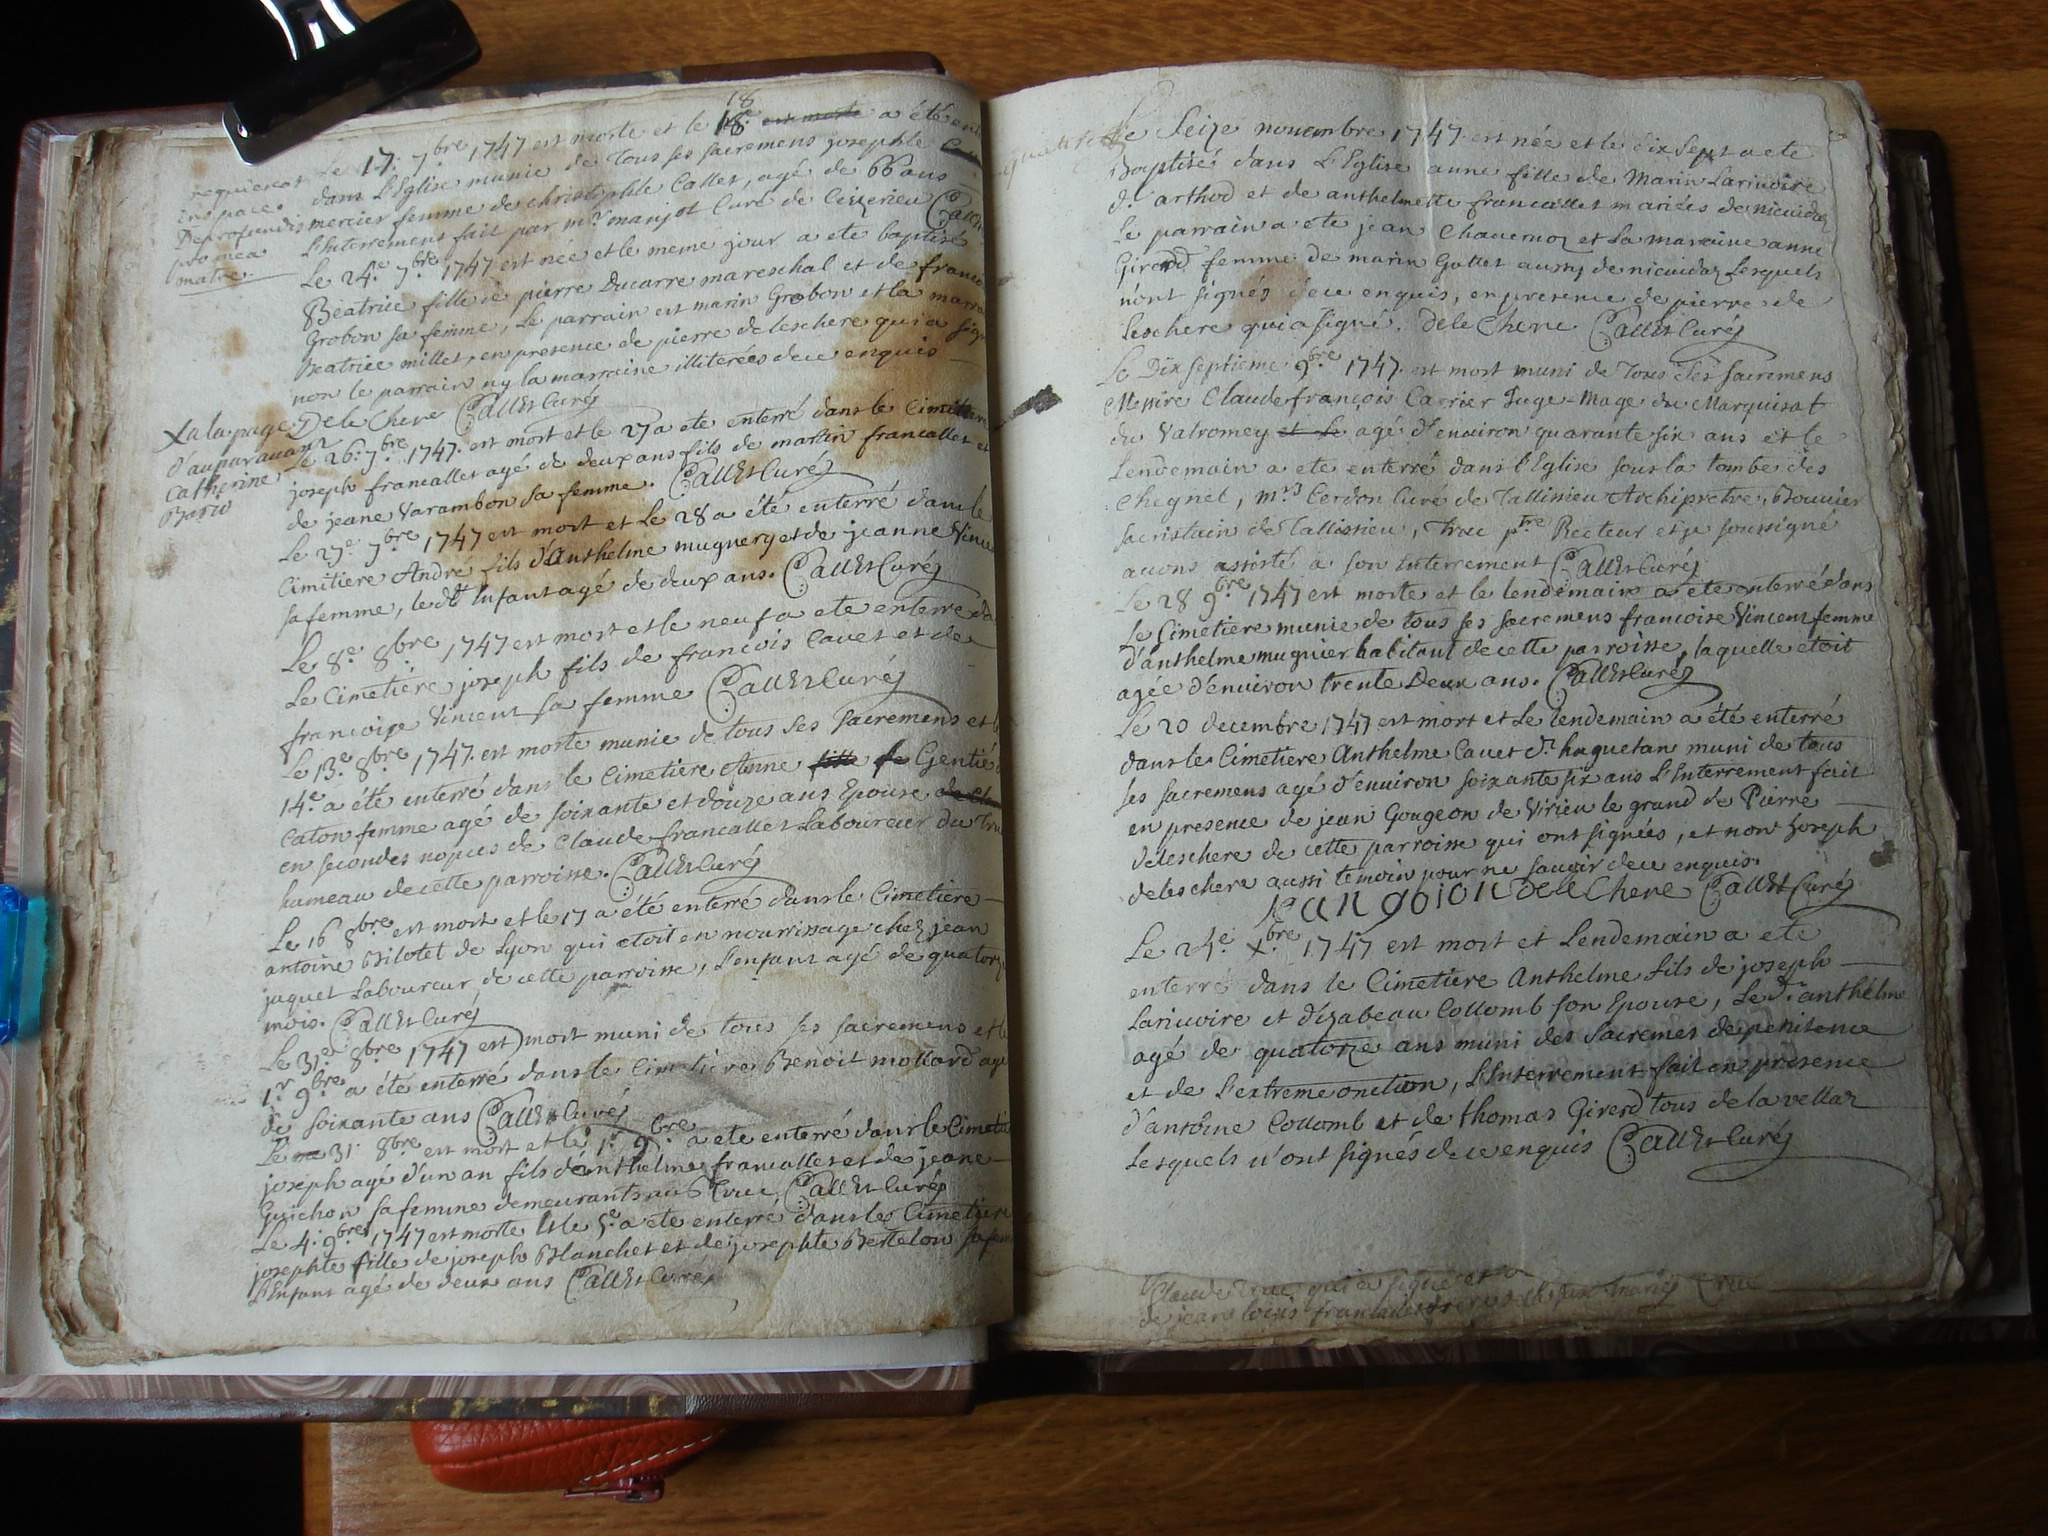 requiescat
in pace.
De profundis
pro mea
matre.
Le 17. 7bre 1747 est morte et le 18 18e est morte a été
dans l'Eglise munie de Tous ses sacremens josephte
mercier femme de christophle Callet, agé de 66 ans
L'Interrement fait par mr. marijot Curé de Ceyzerieu Callet
Le 24e 7bre 1747 est née et le meme jour a ete baptisé
Béatrice fille de pierre Ducarre mareschal et de
Grobon sa femme, Le parrain est marin Grobon et la
Beatrice millet, en presence de pierre de leschere qui a signé
non le parrain ny la marraine illiterées de ce enquis
De le Chere Callet Curé
x a la page
d'auparavant
Catherine
Le 26. 7bre 1747. est mort et le 27 a ete enterré dans le Cimitiere
joseph francallet agé de deux ans fils de martin francallet et
de jeane Varambon sa femme. Callet Curé
Le 27e 7bre 1747 est mort et Le 28 a été enterré dans le
Cimitiere André fils d'Anthelme mugnery et de jeanne
sa femme, le dt Enfant agé de deux ans. Callet Curé
Le 8e 8bre 1747 est mort et le neuf a ete enterré
Le Cimetiere joseph fils de francois Cavet et de
françoise Vincent sa femme Callet Curé
Le 13e 8bre 1747. est morte munie de tous ses sacremens et le
14e a été enterré dans le Cimetiere Anne fille de Gentié
Caton femme agé de soixante et douze ans Epouse
en secondes nopces de Claude francallet Laboureur du
hameau de cette parroisse. Callet Curé
Le 16 8bre est mort et le 17 a été enterré dans le Cimetiere
antoine Bilotet de Lyon qui etoit en nourrissage chez jean
jaquet Laboureur de cette parroisse, l'enfant agé de quatorze
mois. Callet Curé
Le 31e 8bre 1747 est mort muni de tous ses sacremens et le
1r 9bre a été enterré dans le Cimetiere Benoit mollard agé
de soixante ans Callet Curé
Le 31 8bre est mort et le 1r 9bre a ete enterré dans le Cimetiere
joseph agé d'un an fils d'Anthelme francallet et de jeane
Guichon sa femme demeurants au Truc, Callet Curé
Le 4. 9bre 1747 est morte et le 5e a ete enterré dans le Cimetiere
josephte fille de joseph Blanchet et de josephte Bertelon sa
l'Enfant agé de deux ans Callet Curé
Le Seize novembre 1747. est née et le dix sept a ete
Baptisé dans L'Eglise anne fille de Marin Larivoire
dt arthod et de anthelmette francallet mariées de
Le parrain a ete jean Chavernoz et La marraine anne
Girerd femme de marin Gottet aussy de Lesquels
n'ont signés de ce enquis, en presence de pierre de
leschere qui a signé. De le Chere Callet Curé
Le Dix septieme 9bre 1747. est mort muni de Tous Ses Sacremens
Messire Claude françois Carrier Juge-Mage du Marquisat
du Valromey et Le agé d'environ quarante six ans et le
Lendemain a ete enterré dans l'Eglise sous la tombe des
mrs Cerdon Curé de Tallissieu Archipretre, Bouvier
sacristain de Tallissieu, Truc ptre Recteur et je soussigné
avons assisté a son Interrement Callet Curé
Le 28 9bre 1747 est morte et le lendemain a ete enterré dans
Le Cimetiere munie de tous ses sacremens francoise Vincent femme
d'anthelme mugnier habitant de cette parroisse, laquelle etoit
agée d'environ trente Deux ans. Callet Curé
Le 20 decembre 1747 est mort et Le lendemain a été enterré
dans le Cimetiere Anthelme Cavet dt huguetan muni de tous
ses sacremens agé d'environ soixante six ans L'Interrement fait
en presence de jean Gougeon de Virieu le grand de Pierre
deleschere de cette parroisse qui ont signées, et non Joseph
deleschere aussi temoin pour ne savoir de ce enquis.
jean goion De le Chere Callet Curé
Le 24e Xbre 1747 est mort et Lendemain a ete
enterré dans le Cimetiere Anthelme fils de joseph
Larivoire et d'yzabeau Collomb son Epouse, Le dt anthelme
agé de quatorze ans muni des Sacremes de penitence
et de l'extreme onction, L'Interrement fait en presence
d'antoine Collomb et de thomas Girerd tous de lavellaz
Lesquels n'ont signés de ce enquis Callet Curé
Claude Truc qui a signé et
de jean Louis francallet